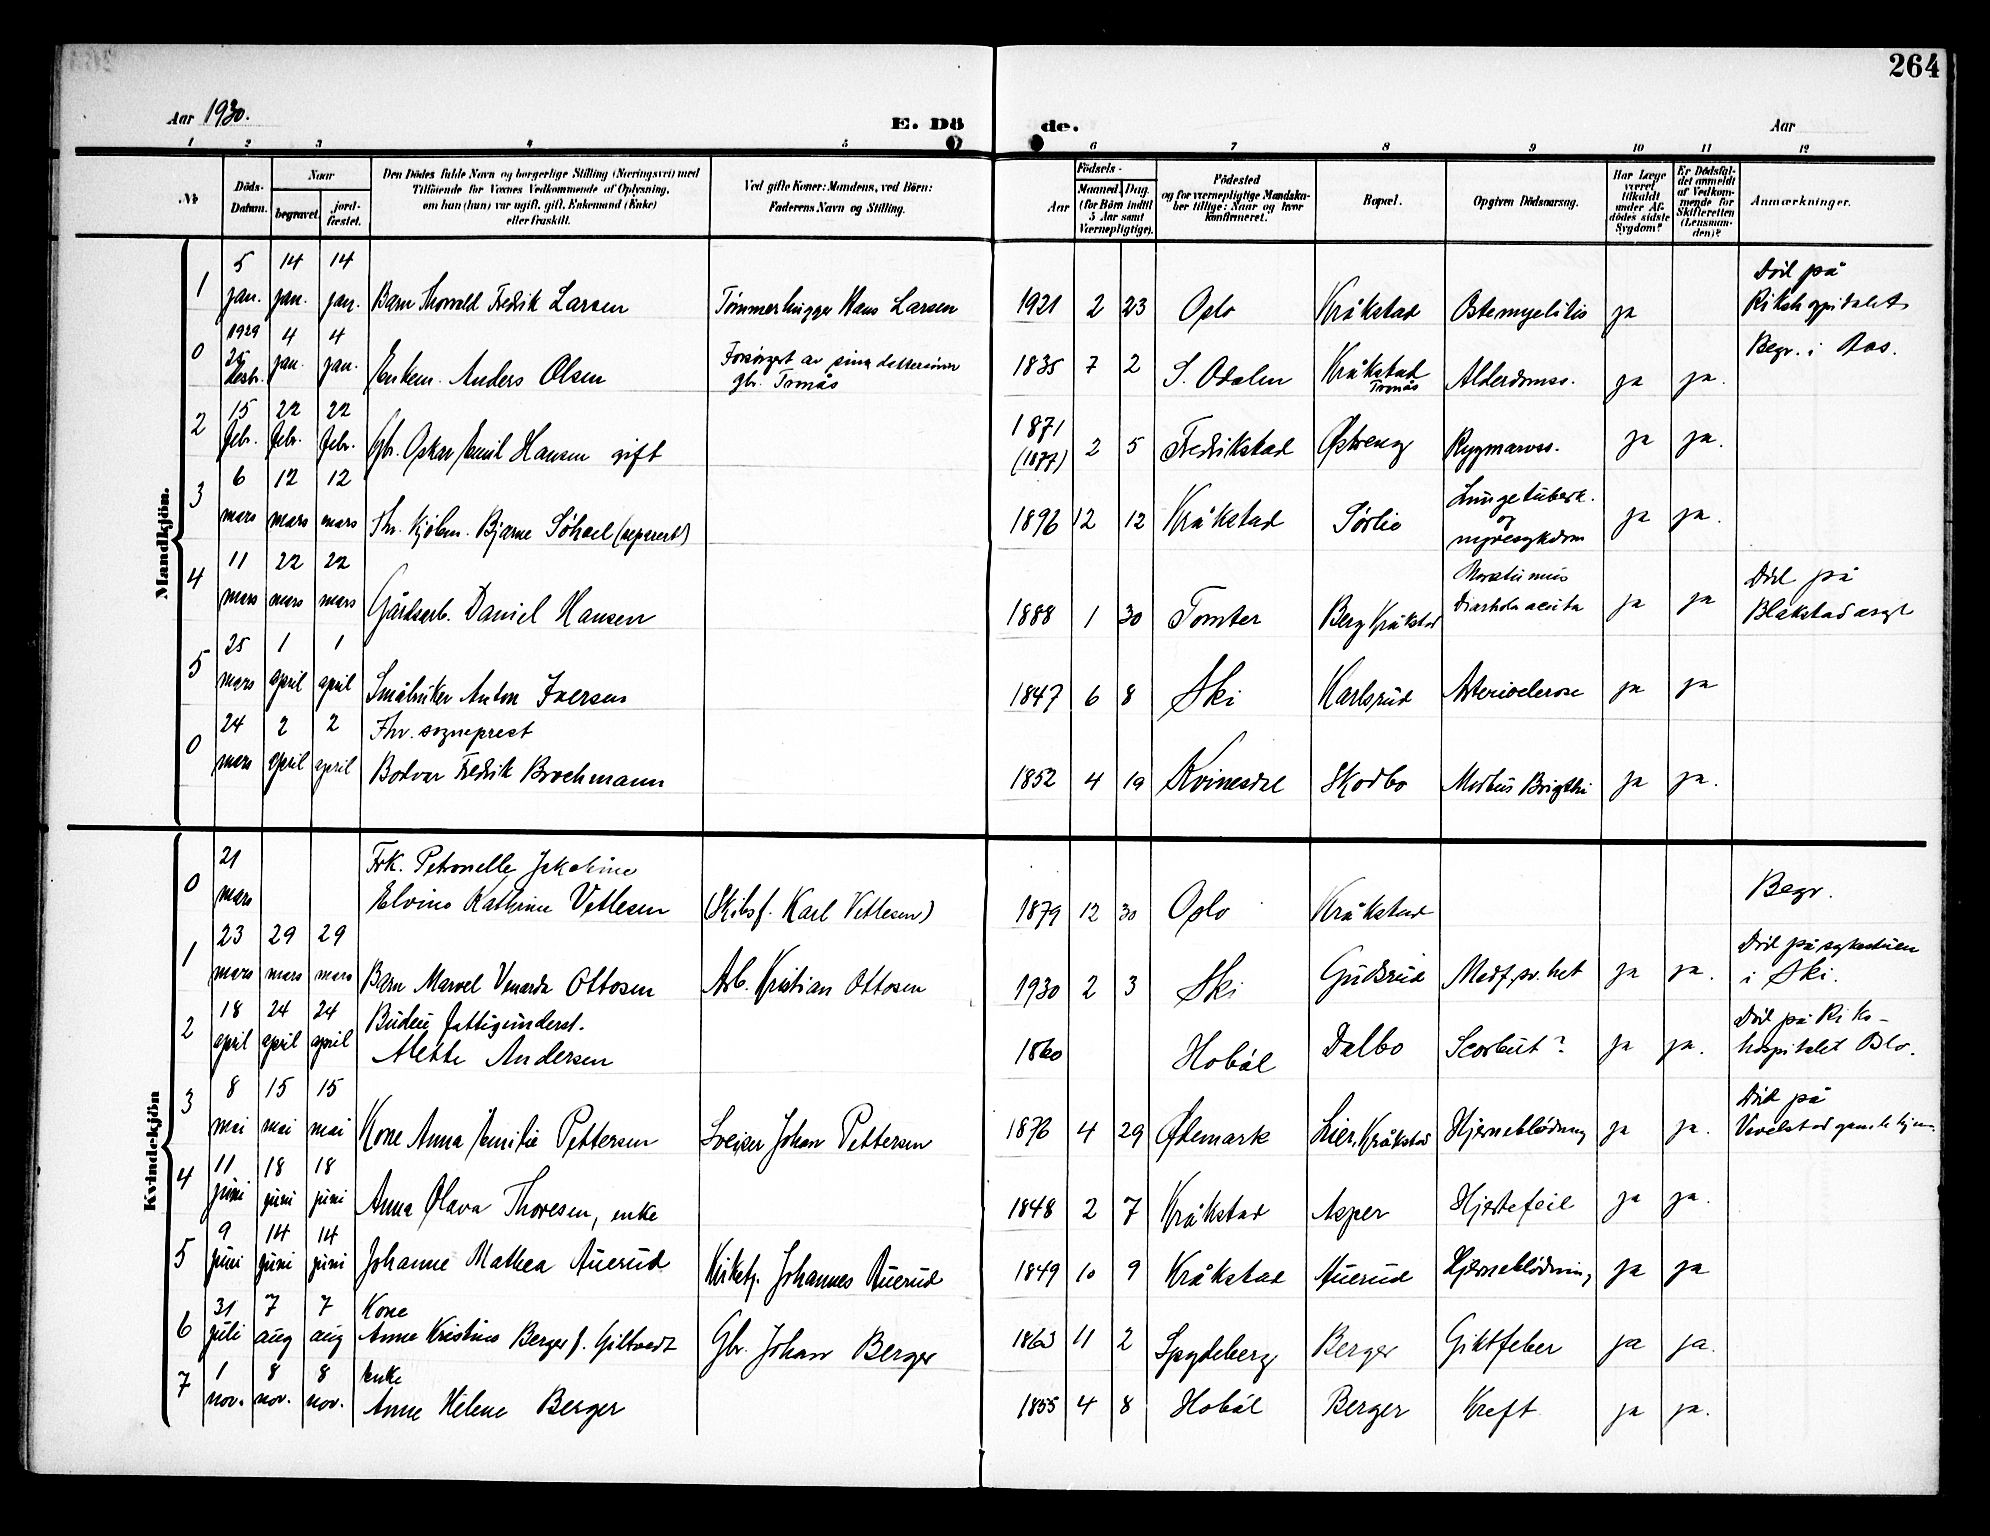 264
Aar 1930.
E. Dö
de.
Aar
1 2 3 4 5 6 7 8 9 10 11 12
№
Döds-Datum.
Naar
begravet.
jord-fæstet.
Den Dödes fulde Navn og borgerlige Stilling (Næringsvei) med
Tilföiende for Voxnes Vedkommende af Oplysning,
om han (hun) var ugift, gift, Enkemand (Enke)
eller fraskilt.
Ved gifte Koner: Mandens, ved Börn:
Faderens Navn og Stilling.
Födsels-
Aar
Maaned. Dag.
(for Börn indtil
5 Aar samt
Værnepligtige).
Födested
og for værnepligtige Mandska-
ber tillige: Naar og hvor
konfirmeret.
Bopæl.
Opgiven Dödsaarsag.
Har Læge
været
tilkaldt
under Af-
dödes sidste
Sygdom?
Er Dödsfal-
det anmeldt
af Vedkom-
mende for
Skifteretten
(Lensman-
den)?
Anmærkninger.
Mandkjön.
1 5 jan. 14 jan. 14 jan. Barn Thorvald Fredrik Larsen Tömmerhugger Hans Larsen 1921 2 23 Oslo Kråkstad Ostemyelitis ja Död på Rikshospitalet
0 1929 25 desbr. 4 jan. 4 jan. Enkem. Anders Olsen Forsörget av sine dattersönner gbr. Tomås 1835 7 2 S. Odalen Kråkstad Tomås Alderdomss. ja ja. Begr. i Aas.
2 15 febr. 22 febr. 22 febr. Gbr. Oskar Emil Hansen gift 1871 (1877) 2 5 Fredrikstad Østreng Rygmarvss. ja ja.
3 6 mars 12 mars 12 mars Fhv. Kjöbm. Bjarne Söhoel (separert) 1896 12 12 Kråkstad Sörlie Lungetuberk. og nyresykdom ja ja.
4 11 mars 22 mars 22 mars Gårdsarb. Daniel Hansen 1888 1 30 Tomter Berg Kråkstad Marasmus Diarrhoea acuta ja ja Död på Blakstad asyl
5 25 mars 1 april 1 april Småbruker Anton Iversen 1847 6 8 Ski Karlsrud Arteriosclerose ja ja
0 24 mars 2 april 2 april Fhv. sogneprest
Bodvar Fredrik Brochmann 1852 4 19 Kvinesdal Skodbo Morbus Brigthi ja ja.
Kvindekjön
0 21 mars Frk. Petronelle Jakobine
Elvine Kathrine Vetlesen (Skibsf. Karl Vetlesen) 1879 12 30 Oslo Kråkstad Begr.
1 23 mars 29 mars 29 mars Barn Marvel Venarda Ottosen Arb. Kristian Ottosen 1930 2 3 Ski Gudsrud Medf. sv.het ja ja. Död på sykestuen i Ski.
2 18 april 24 april 24 april Budeie fattigunderst.
Mette Andersen 1860 Hoböl Dalbo Scorbut? ja ja. Död på Riks-
hospitalet Oslo.
3 8 mai 15 mai 15 mai Kone Anna Emilie Pettersen Sveiser Johan Pettersen 1876 4 29 Ødemark Lier, Kråkstad Hjerneblödning ja ja. Död på
Vevelstad gamlehjem
4 11 juni 18 juni 18 juni Anna Olava Thoresen, enke 1848 2 7 Kråkstad Asper Hjertefeil ja ja.
5 9 juni 14 juni 14 juni Johanne Mathea Auerud Kirketj. Johannes Auerud 1849 10 9 Kråkstad Auerud Hjerneblödning ja ja
6 31 juli 7 aug 7 aug Kone
Anne Kristine Berger f. Giltvedt Gbr. Johan Berger 1863 11 2 Spydeberg Berger Giktfeber ja ja.
7 1 nov. 8 nov. 8 nov. Enke
Anne Helene Berger 1855 4 8 Hoböl Berger Kreft ja ja.